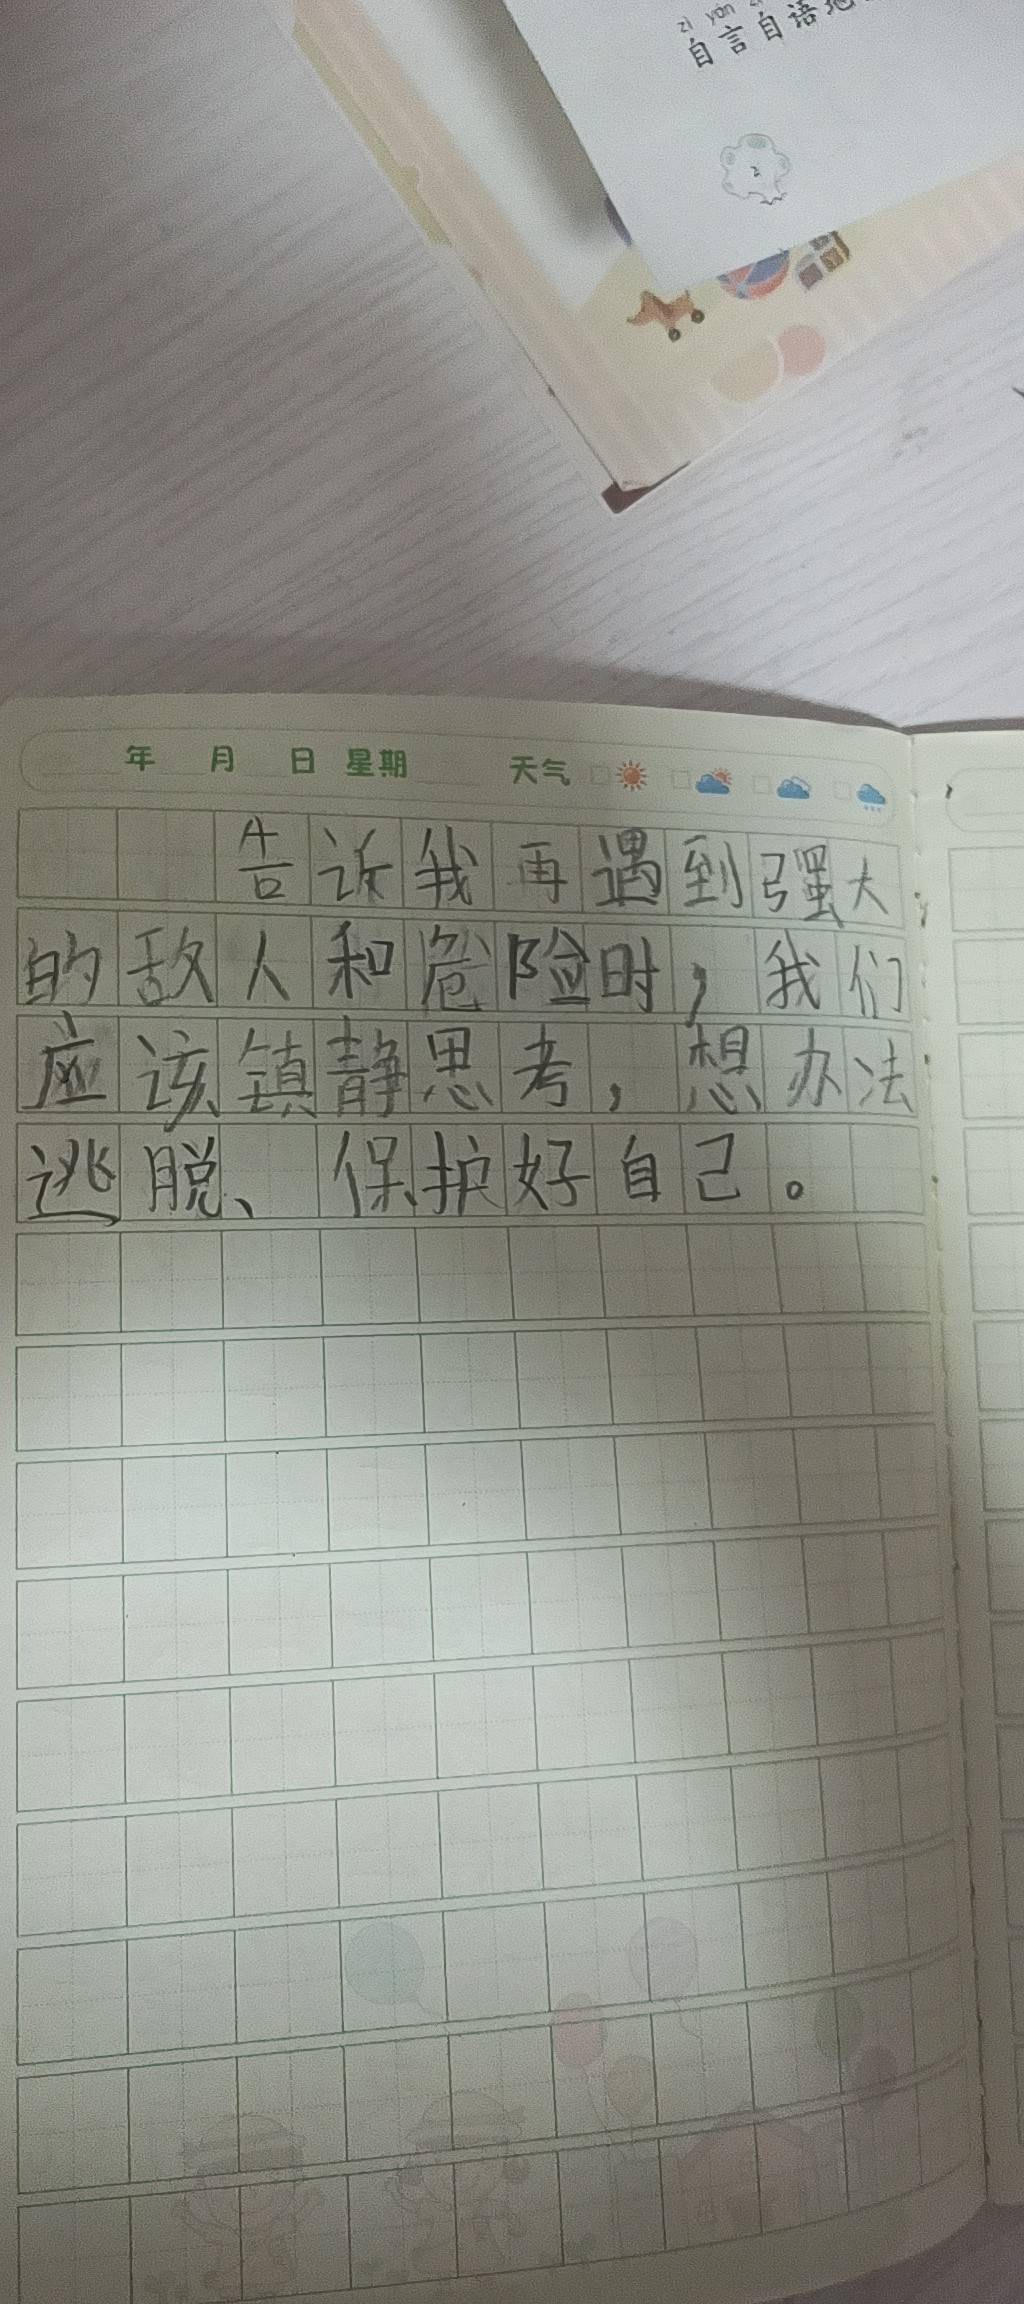 zì yán
自言自语地
2
年 月 日 星期 天气
告诉我再遇到强大
的敌人和危险时，我们
应该镇静思考，想办法
逃脱、保护好自己。